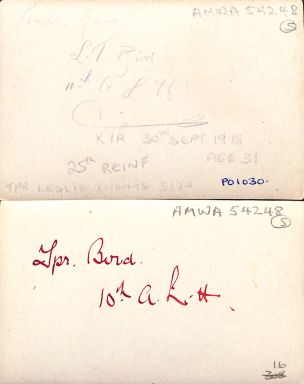 AMWA 54248
S
L. T Bird
A L H
KIA 30th SEPT 1918
AGE 31
25th REINF
TPR LESLIE THOMAS 3172
PO1030.
AMWA 54248
S
Tpr. Bird.
10th A. L. H.
16